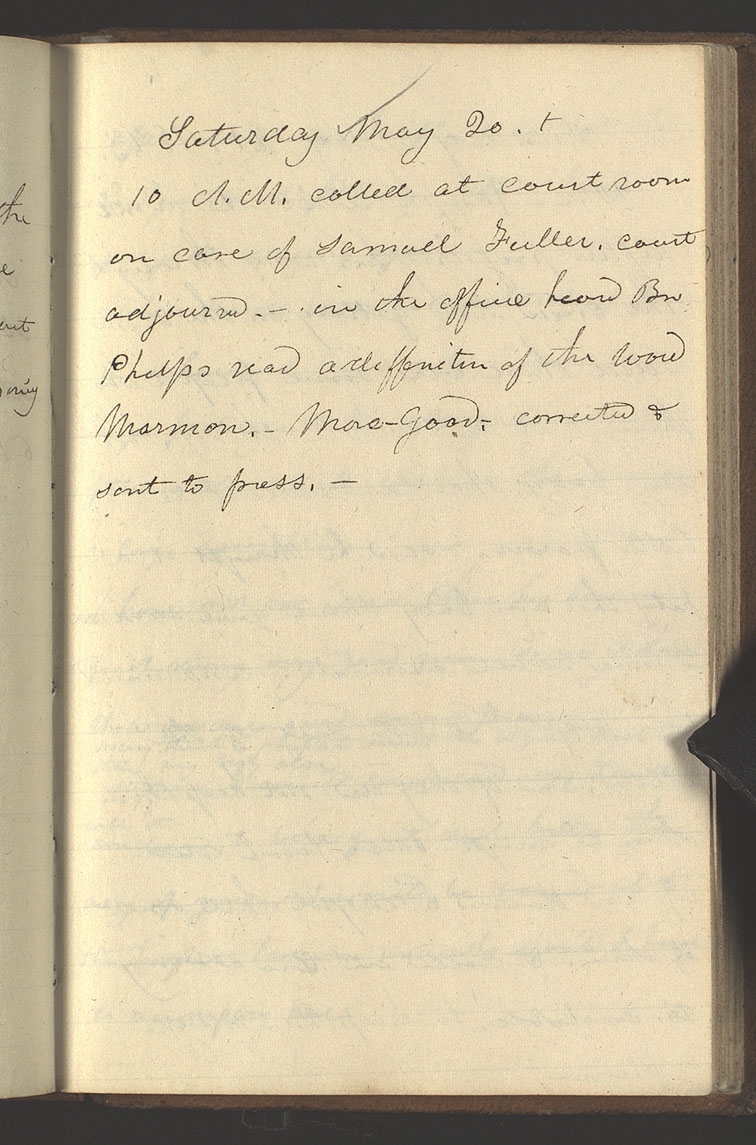 Saturday May 20. +
10 A.M. called at court room
on case of Samuel Fuller. court
adjournd. - in the office heard Bro
Phelps read a deffinitin of the word
Mormon. - More-Good- corrected &
sent to press. -
the